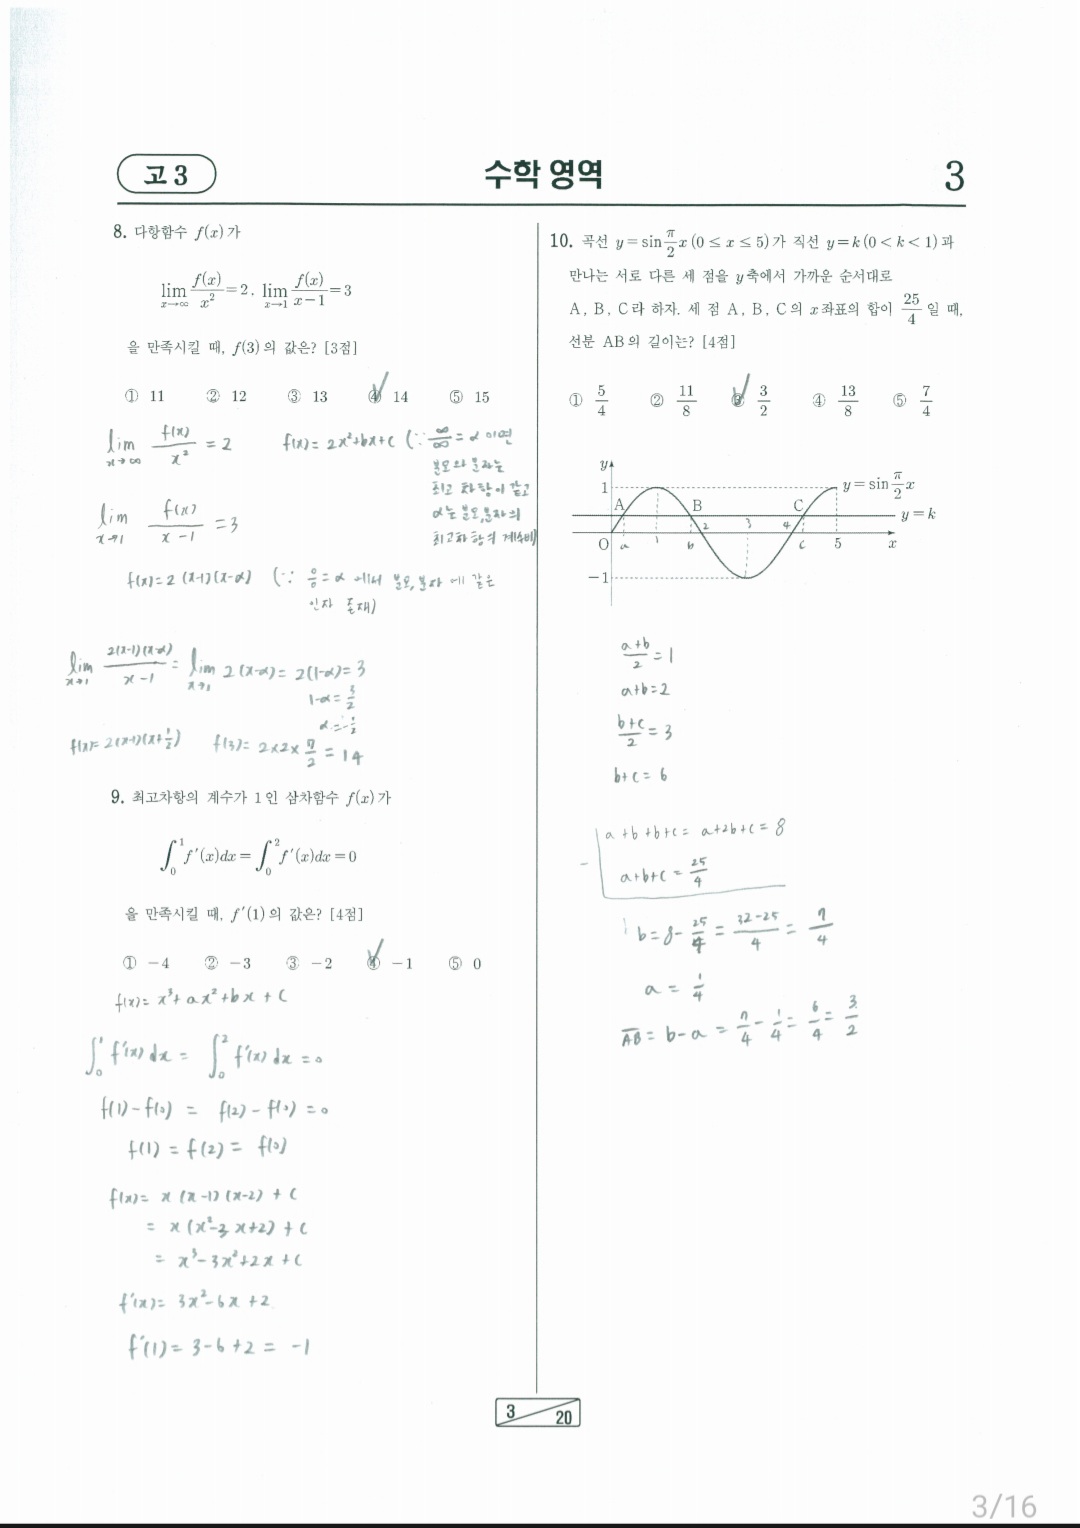 고 3
수학 영역
3
8. 다항함수 f(x)가
lim_{x→∞} f(x)/x² = 2, lim_{x→1} f(x)/(x-1) = 3
을 만족시킬 때, f(3)의 값은? [3점]
① 11 ② 12 ③ 13 ④ 14 ⑤ 15
lim_{x→∞} f(x)/x² = 2 f(x) = 2x²+bx+c (∵ ∞/∞ = α 이면
분모와 분자는
최고 차항이 같고
α는 분모,분자의
최고차항의 계수비)
lim_{x→1} f(x)/(x-1) = 3
f(x) = 2(x-1)(x-α) (∵ 0/0 = α 에서 분모,분자 에 같은
인자 존재)
lim_{x→1} 2(x-1)(x-α)/(x-1) = lim_{x→1} 2(x-α) = 2(1-α) = 3
1-α = 3/2
α = -1/2
f(x) = 2(x-1)(x+1/2) f(3) = 2×2×7/2 = 14
9. 최고차항의 계수가 1인 삼차함수 f(x)가
∫₀¹ f′(x)dx = ∫₀² f′(x)dx = 0
을 만족시킬 때, f′(1)의 값은? [4점]
① -4 ② -3 ③ -2 ④ -1 ⑤ 0
f(x) = x³+ax²+bx+c
∫₀¹ f′(x)dx = ∫₀² f′(x)dx = 0
f(1)-f(0) = f(2)-f(0) = 0
f(1) = f(2) = f(0)
f(x) = x(x-1)(x-2)+c
= x(x²-3x+2)+c
= x³-3x²+2x+c
f′(x) = 3x²-6x+2
f′(1) = 3-6+2 = -1
10. 곡선 y = sin π/2 x (0 ≤ x ≤ 5)가 직선 y = k (0 < k < 1)과
만나는 서로 다른 세 점을 y축에서 가까운 순서대로
A, B, C라 하자. 세 점 A, B, C의 x좌표의 합이 25/4 일 때,
선분 AB의 길이는? [4점]
① 5/4 ② 11/8 ③ 3/2 ④ 13/8 ⑤ 7/4
y
1
y = sin π/2 x
A B C
y = k
2 3 4
O a 1 b c 5 x
-1
(a+b)/2 = 1
a+b = 2
(b+c)/2 = 3
b+c = 6
a+b+b+c = a+2b+c = 8
- a+b+c = 25/4
b = 8-25/4 = (32-25)/4 = 7/4
a = 1/4
AB = b-a = 7/4-1/4 = 6/4 = 3/2
3
20
3/16